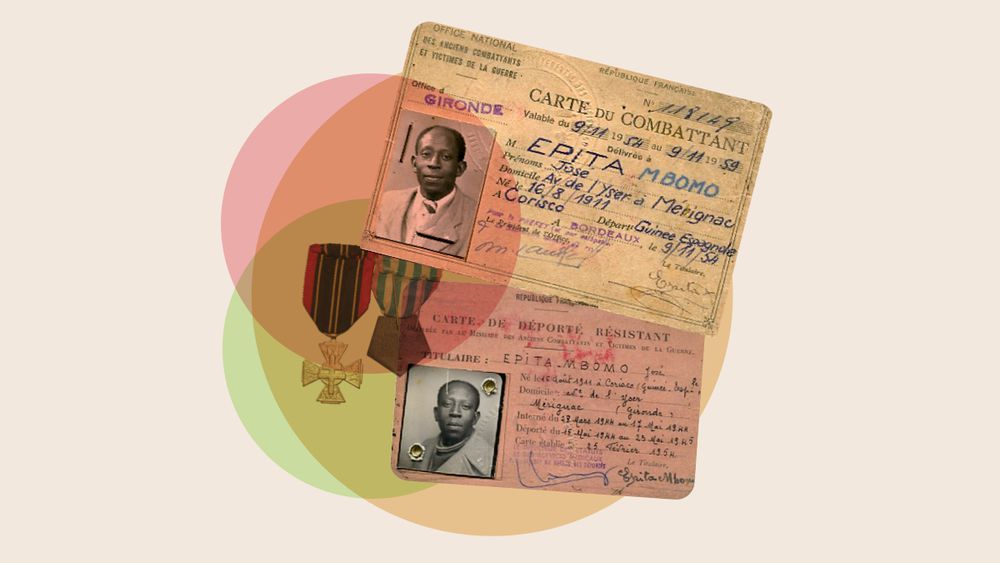 OFFICE NATIONAL
DES ANCIENS COMBATTANTS
ET VICTIMES DE LA GUERRE
RÉPUBLIQUE FRANÇAISE
Office d
GIRONDE
N° 118149
CARTE DU COMBATTANT
Valable du 9/11 1954 au 9/11 1959
Délivrée à
M. EPITA MBOMO
Prénoms José
Domicile Av. de l'Yser à Mérignac
Né le 16/8/1911
A Corisco Départ Guinée Espagnole
A BORDEAUX le 9/11/54
Le Titulaire,
Epita
RÉPUBLIQUE
CARTE DE DÉPORTÉ RÉSISTANT
DÉLIVRÉE PAR LE MINISTRE DES ANCIENS COMBATTANTS ET VICTIMES DE LA GUERRE.
TITULAIRE : EPITA MBOMO José
Né le 16 Août 1911 à Corisco (Guinée Esp
Domicile de l'Yser
Mérignac (Gironde
Interné du 28 Mars 1944 au 17 Mai 1944
Déporté du 18 Mai 1944 au 23 Mai 1945
Carte établie 25 Février 1954
Le Titulaire,
Epita Mbomo